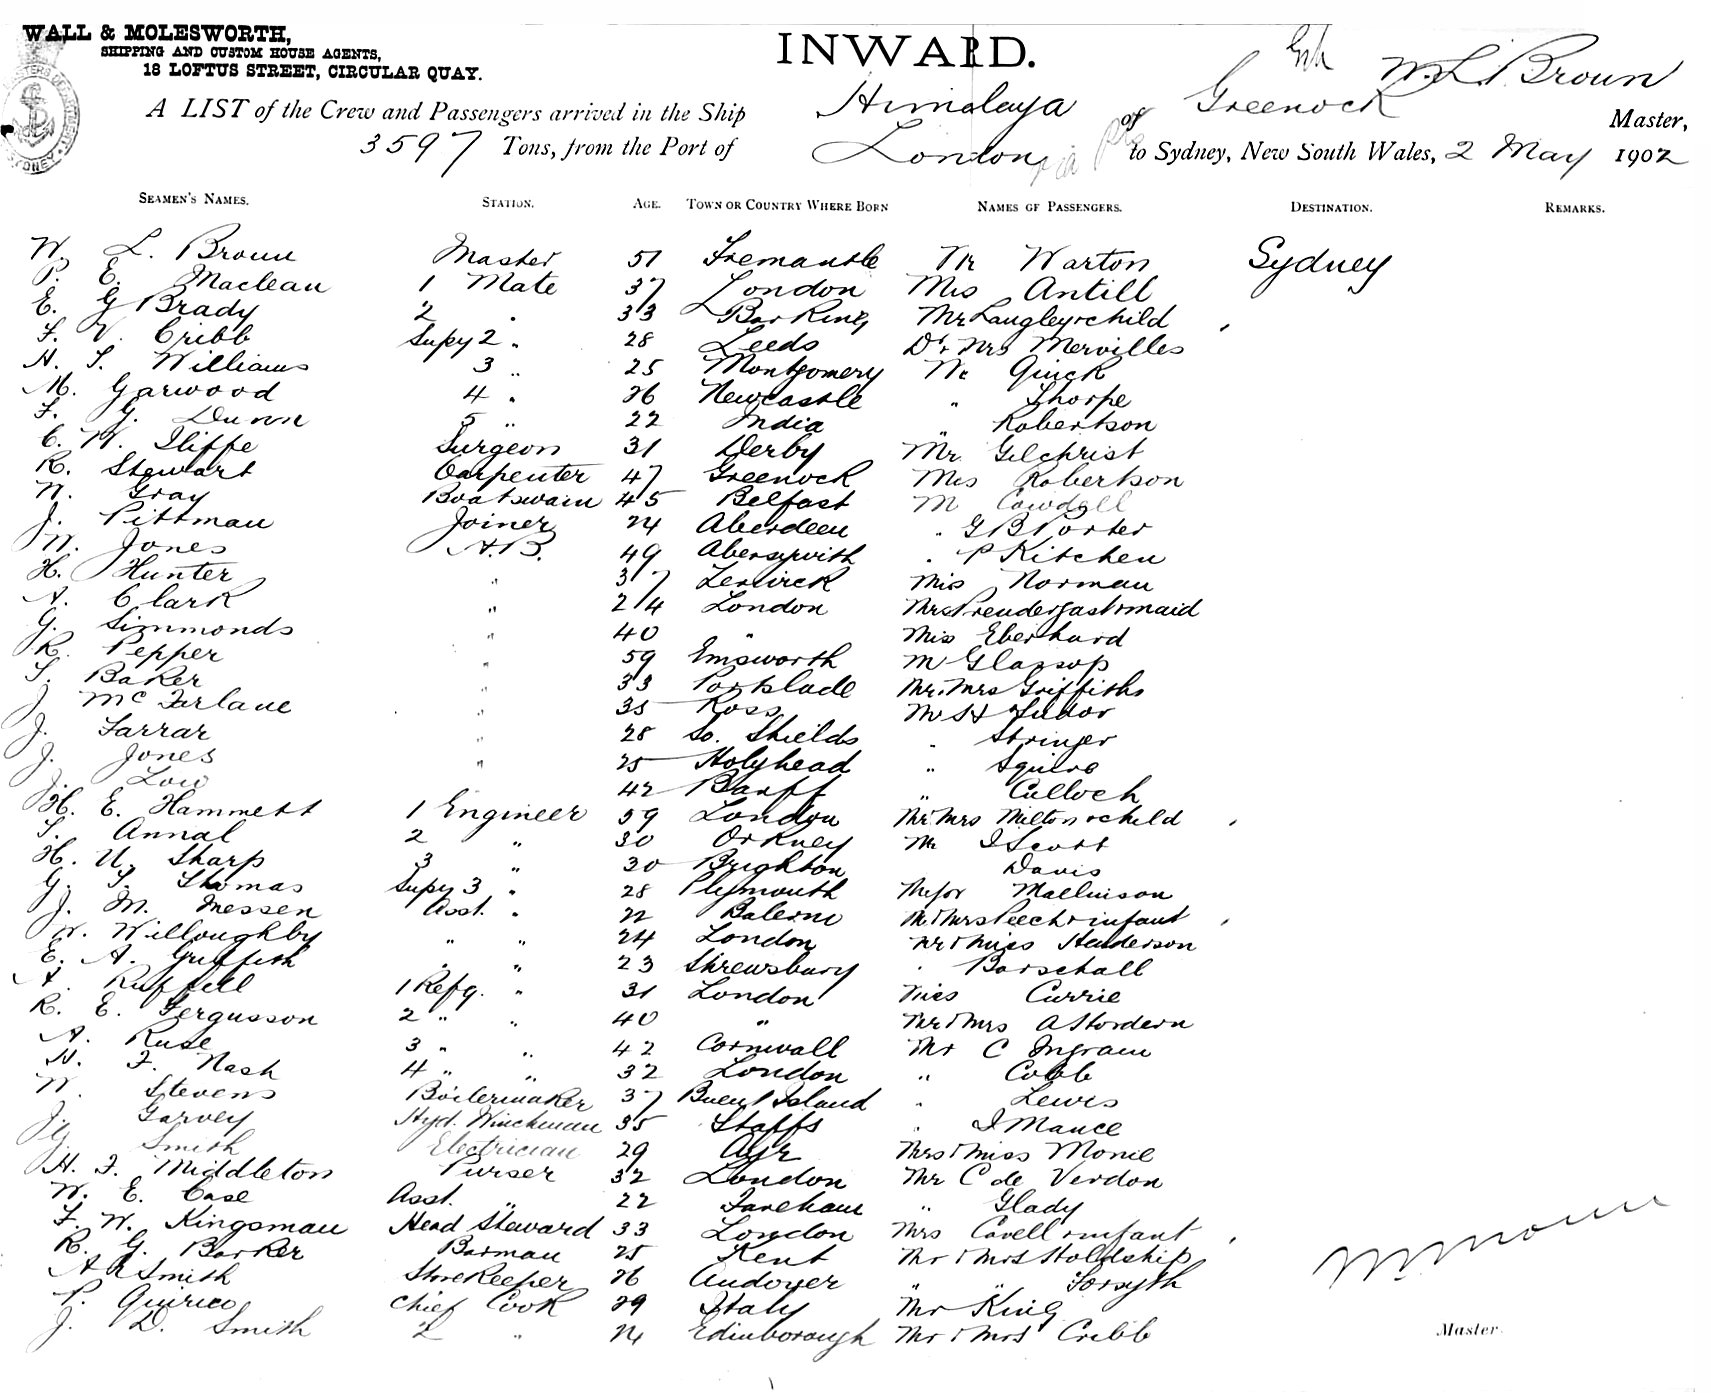 WALL & MOLESWORTH,
SHIPPING AND CUSTOM HOUSE AGENTS,
18 LOFTUS STREET, CIRCULAR QUAY.
INWARD.
W. L. Broun
A LIST of the Crew and Passengers arrived in the Ship Himalaya of Greenock Master,
3597 Tons, from the Port of London to Sydney, New South Wales, 2 May 1902
SEAMEN'S NAMES. STATION. AGE. TOWN OR COUNTRY WHERE BORN NAMES OF PASSENGERS. DESTINATION. REMARKS.
W. L. Broun Master 51 Fremantle Mr Warton Sydney
P. E. Maclean 1 Mate 37 London Mrs Antill
E. G Brady 2 " 33 Barking Mr Langley & child
F. V. Cribb Supy 2 " 28 Leeds Dr & Mrs Mervilles
H. T. Williams 3 " 25 Montgomery Mr Quick
M. Garwood 4 " 26 Newcastle " Thorpe
F. G. Dunn 5 " 22 India " Robertson
C. W. Iliffe Surgeon 31 Derby Mr Gilchrist
R. Stewart Carpenter 47 Greenock Mrs Robertson
W. Gray Boatswain 45 Belfast M Cowdell
J. Pittman Joiner 24 Aberdeen " G B Porter
W. Jones A.B. 49 Aberyswith " P Kitchen
H. Hunter " 37 Lerwick Miss Norman
A. Clark " 24 London Mrs Prendergast & maid
G. Simmonds " 40 " Miss Eberhard
R. Pepper " 59 Emsworth M Glassop
T. Baker " 33 Portslade Mr & Mrs Griffiths
J McFarlane " 35 Ross Mr S H Tudor
J. Farrar " 28 So. Shields " Stringer
J. Jones " 25 Holyhead " Squire
J. Low 42 Banff " Culloch
H. E. Hammett 1 Engineer 59 London Mr & Mrs Milton & child
T. Annal 2 " 30 Orkney Mr I Scott
H. U. Sharp 3 " 30 Brighton Davis
G. T. Thomas Supy 3 " 28 Plymouth Major Mallinson
J. M. Messen Asst. " 22 Balerno Mr & Mrs Peech & infant
W. Willoughby " " 24 London Mr & Miss Henderson
E. A. Griffith " " 23 Shrewsbury " Borschall
A. Ruffell 1 Refg. " 31 London Miss Currie
R. E. Fergusson 2 " " 40 " Mr & Mrs A Stordern
A. Ruse 3 " " 42 Cornwall Mr C Ingram
H. F. Nash 4 " " 32 London " Cobb
W. Stevens Boilermaker 37 Island " Lewis
J. Garvey Hyd. Winchman 35 Staffs " I Mance
G. Smith Electrician 29 Ayr Mrs & Miss Monie
H. F. Middleton Purser 32 London Mr C de Verdon
W. E. Case Asst. " 22 Fareham " Glady
F. W. Kingsman Head Steward 33 London Mrs Cavell & infant
R. G. Barker Barman 25 Kent Mr & Mrs Holdship
A R Smith Storekeeper 26 Andover " " Forsyth
P. Quirico Chief Cook 29 Italy Mr King
J. D. Smith 2 " 24 Edinborough Mr & Mrs Cribb
Master.